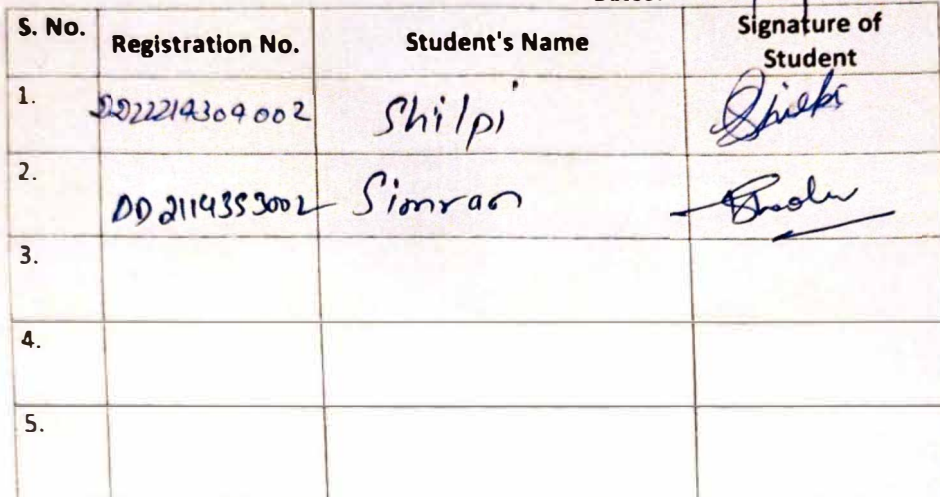 S. No. Registration No. Student's Name Signature of Student
1. DD22214304002 Shilpi Shilpi
2. DD2114353002 Simran
3.
4.
5.